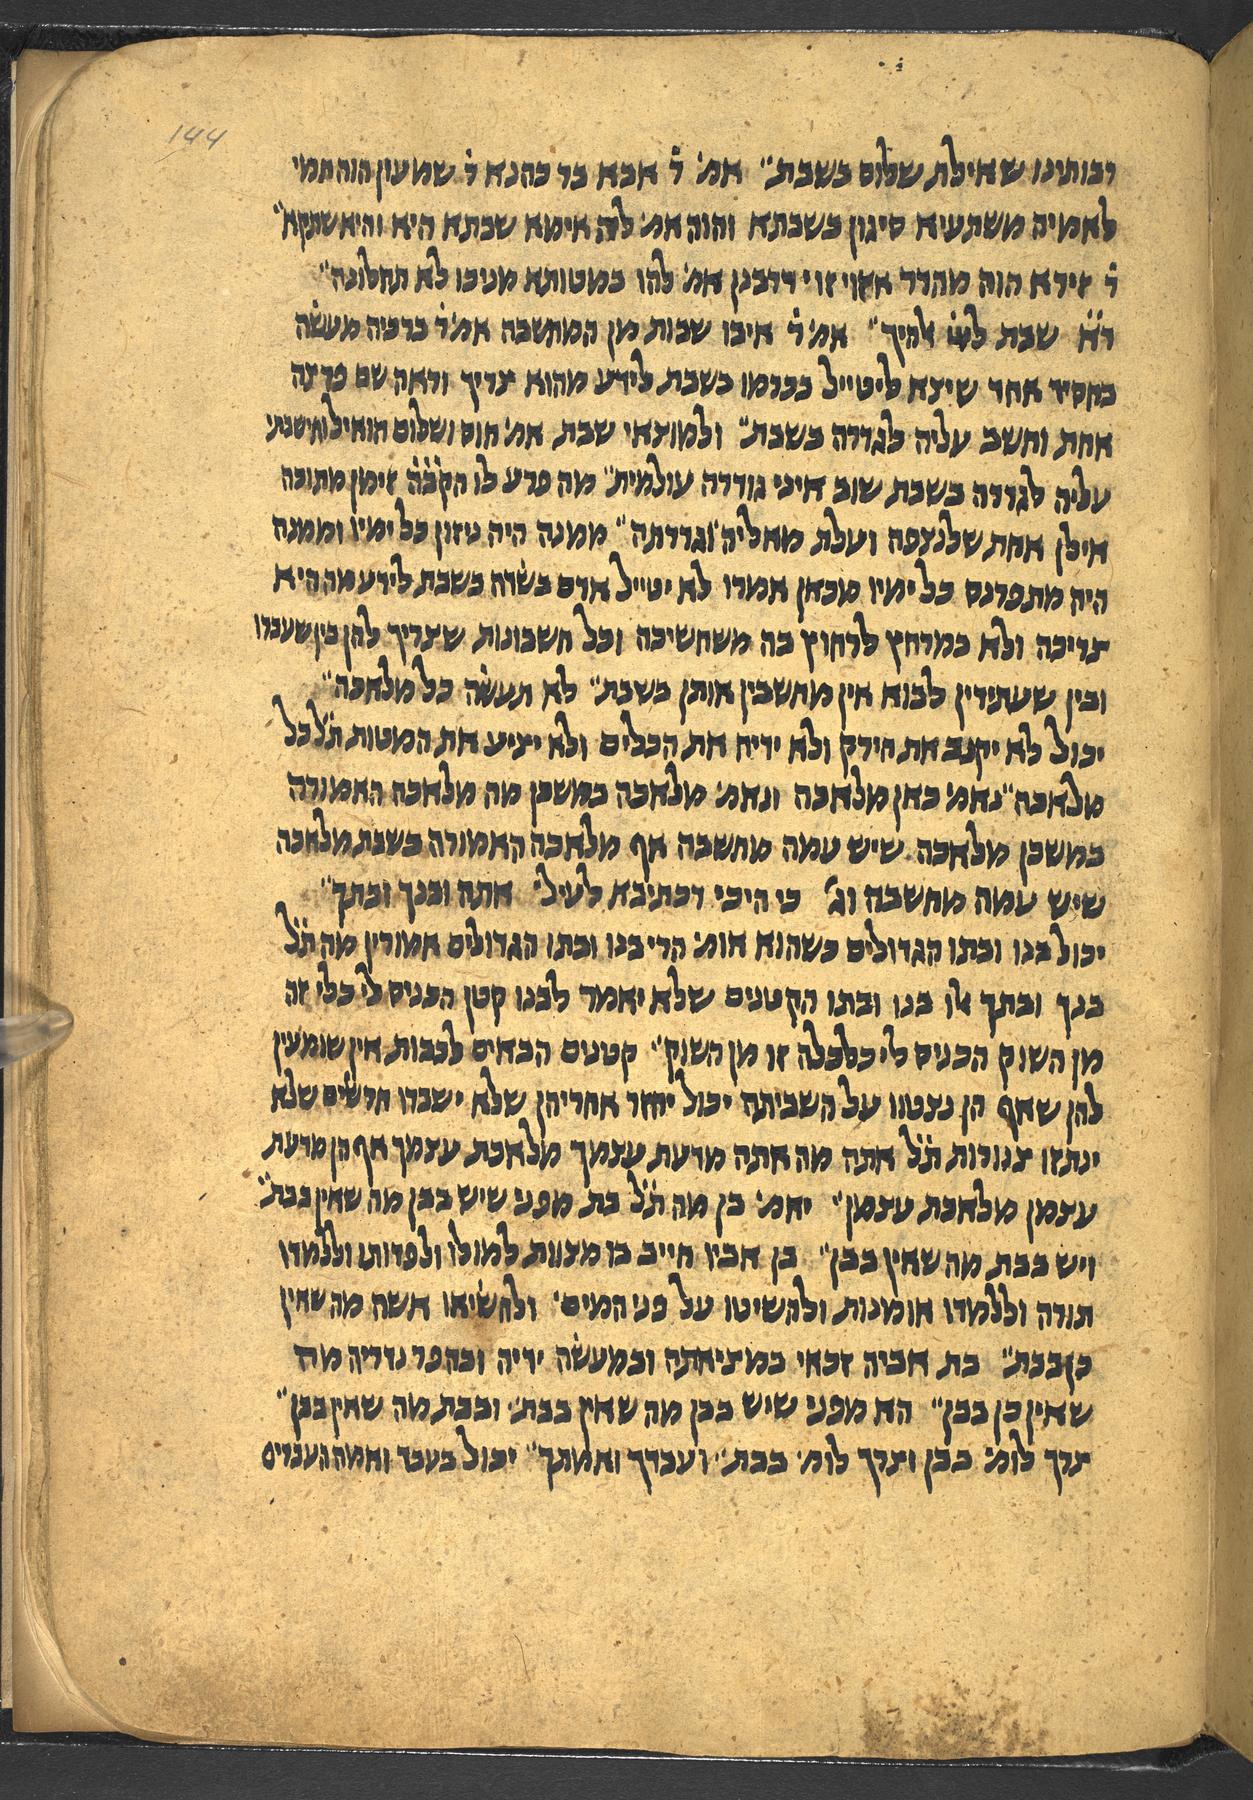 144
רבותינו שאילת שלום בשבת״ אמ׳ ר׳ אבא בר כהנא ר׳ שמעון הוה חמי
לאמיה משתעיא סיגון בשבתא והוה אמ׳ לה אימא שבתא היא והיא שתקא״
ר׳ זירא הוה מהדר אזוי זוי דרבנן אמ׳ להו במטותא מניכו לא תחלונה״
ד״א שבת ליי׳ אלהיך״ אמ׳ ר׳ איבו שבות מן המחשבה אמ׳ ר׳ ברכיה מעשה
בחסיד אחד שיצא לטייל בכרמו בשבת לידע מהוא צריך וראה שם פרצה
אחת וחשב עליה לגדרה בשבת״ ולמוצאי שבת אמ׳ חוס ושלום הואיל וחישבתי
עליה לגדרה בשבת שוב איני גודרה עולמית״ מה פרע לו הק׳ב׳ה׳ זימן מתוכה
אילן אחת שלנצפה ועלת מאליה וגדרתה״ ממנה היה ניזון כל ימיו וממנה
היה מתפרנס כל ימיו מכאן אמרו לא יטייל אדם בשדה בשבת לידע מה היא
צריכה ולא במרחץ לרחוץ בה משחשיכה וכל חשבונות שצריך להן בין שעברו
ובין שעתידין לבוא אין מחשבין אותן בשבת״ לא תעשה כל מלאכה״
יכול לא יקנב את הירק ולא ידיח את הכלים ולא יציע את המטות ת״ל כל
מלאכה״ נאמ׳ כאן מלאכה ונאמ׳ מלאכה במשכן מה מלאכה האמורה
במשכן מלאכה שיש עמה מחשבה אף מלאכה האמורה בשבת מלאכה
שיש עמה מחשבה וג׳ כי היכי דכתיבא לעיל׳ אתה ובנך ובתך״
יכול בנו ובתו הגדולים כשהוא אומ׳ הרי בנו ובתו הגדולים אמורין מה ת״ל
בנך ובתך אלו בנו ובתו הקטנים שלא יאמר לבנו קטן הכניס לי כלי זה
מן השוק הכניס לי כלכלה זו מן השוק״ קטנים הבאים לכבות אין שומעין
להן שאף הן נצטוו על השביתה יכול יחזר אחריהן שלא ישברו חרשים שלא
ינתזו צנורות ת״ל אתה מה אתה מדעת עצמך מלאכת עצמך אף הן מדעת
עצמן מלאכת עצמן״ יאמ׳ בן מה ת״ל בת מפני שיש בבן מה שאין בבת״
ויש בבת מה שאין בבן״ בן אביו חייב בו מצות למולו ולפדותו וללמדו
תורה וללמדו אומנות ולהשיטו על פני המים׳ ולהשיאו אשה מה שאין
כן בבת״ בת אביה זכאי במציאתה ובמעשה ידיה ובהפר נדריה מה
שאין כן בבן״ הא מפני שיש בבן מה שאין בבת׳ ובבת מה שאין בבן״
צרך לומ׳ בבן וצרך לומ׳ בבת׳ ועבדך ואמתך״ יכול בעבד ואמה העברים